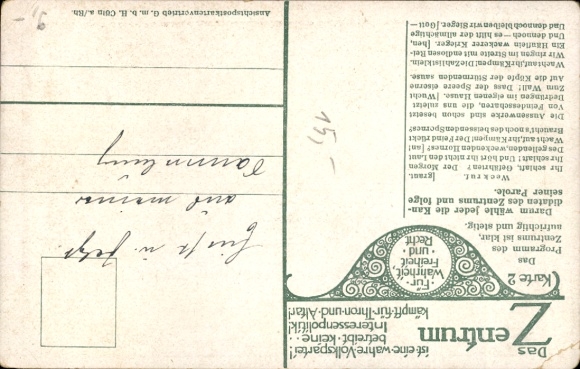 Das Zentrum
ist·eine·wahre·Volkspartei!
betreibt·keine··
Interessenpolitik!
kämpft·für·Thron·und·Altar!
(Karte 2
·Für·
Wahrheit,
Freiheit
·und·
Recht
Das
Programm des
Zentrums ist klar,
aufrichtig und stetig.
Darum wähle jeder die Kan-
didaten des Zentrums und folge
seiner Parole.
Weckruf.
Ihr schlaft, Gefährten? Der Morgen [graut,
Ihr schlaft? Und hört ihr nicht den Laut
Des gellenden, weckenden Hornes? [an!
Wacht auf, ihr Kämpen! Der Feind rückt
Braucht's noch des beissenden Spornes?
Die Aussenwerke sind schon besetzt
Von Feindesscharen, die uns zuletzt
Bedringen im eigenen Hause. [Wucht
Zum Wall! Dass der Speere eiserne
Auf die Köpfe der Stürmenden sause.
Wacht auf, ihr Kämpen! Die Zahl ist klein.
Wir ringen im Streite mit endlosen Rei-[hen,
Ein Häuflein wackerer Krieger.
Und dennoch — es hilft der allmächtige [Gott —
Und dennoch bleiben wir Sieger.
Ansichtspostkartenvertrieb G. m. b. H. Cöln a./Rh.
aus meiner
Sammlung
15,-
9,-